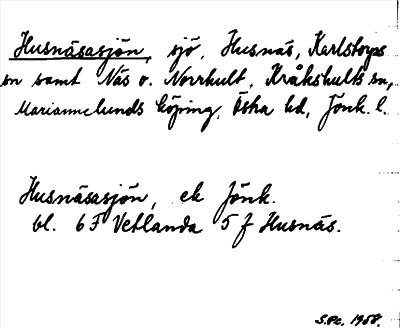 Husnäsasjön, sjö, Husnäs, Karlstorps
sn samt Näs o. Norrhult, Kråkshults sn,
Mariannelunds köping, Östra hd, Jönk. l.
Husnäsasjön, ek Jönk.
bl. 6 F Vetlanda 5 f Husnäs.
S.Pc. 1958.